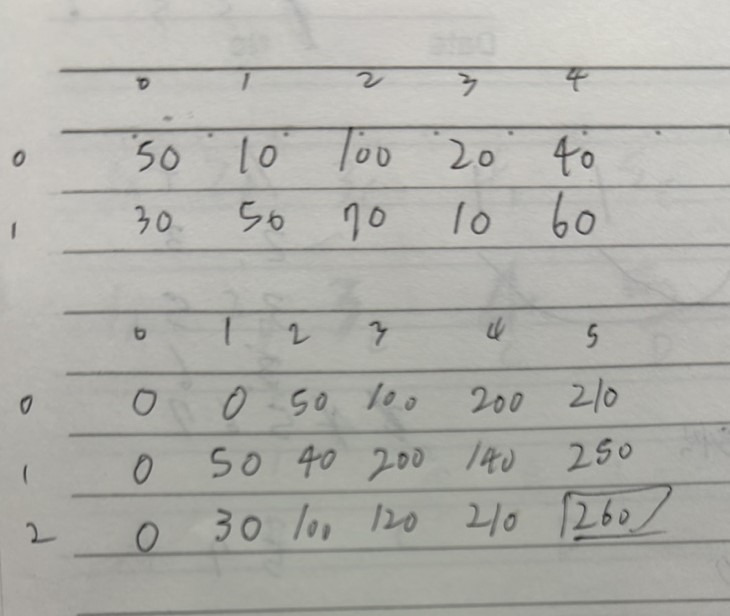 0 1 2 3 4
0 50 10 100 20 40
1 30 50 70 10 60
0 1 2 3 4 5
0 0 0 50 100 200 210
1 0 50 40 200 140 250
2 0 30 100 120 210 260